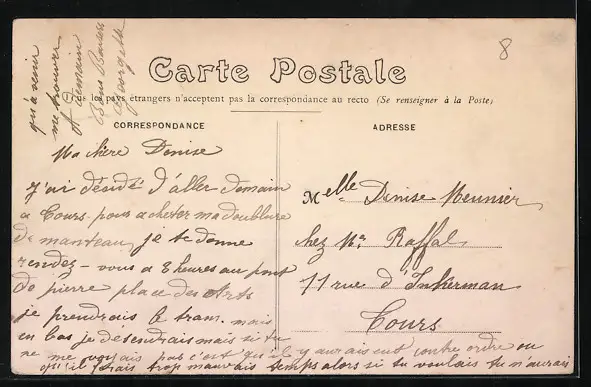 8
Carte Postale
les pays étrangers n'acceptent pas la correspondance au recto (Se renseigner à la Poste)
CORRESPONDANCE
Ma chère Denise
J'ai désidé d'aller demain
a Tours pour acheter ma doublure
de manteau, je te donne
rendez-vous a 8 heures au pont
de pierre place des Arts
je prendrais le tram. mais
en bas je désendrais mais si tu
ne me voyais pas c'est qu'il y aurais eut contre ordre ou
qu'il ferais trop mauvais temps alors si tu voulais tu n'aurais
qu'a venir
me trouver
A demain
Bons Baisers
Georgette
ADRESSE
Melle Denise Meunier
chez Mr Raffal
11 rue d'Inkerman
Tours